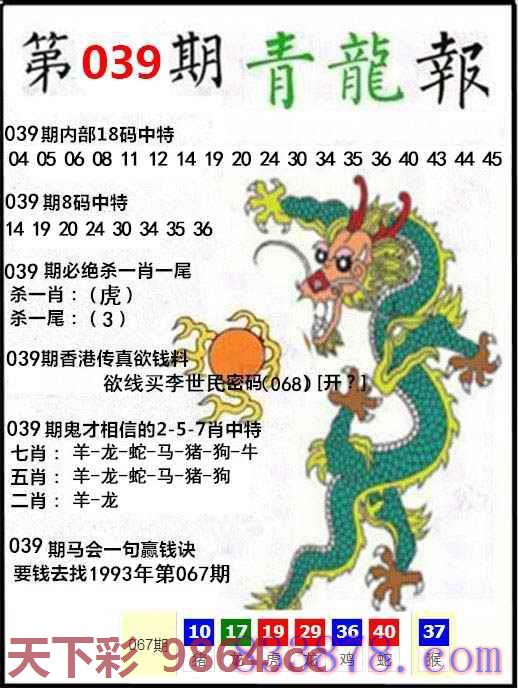 第039期 青龍報
039期内部18码中特
04 05 06 08 11 12 14 19 20 24 30 34 35 36 40 43 44 45
039期8码中特
14 19 20 24 30 34 35 36
039 期必绝杀一肖一尾
杀一肖：(虎)
杀一尾：(3)
039期香港传真欲钱料
欲线买李世民密码(068) [开?]
039期鬼才相信的2-5-7肖中特
七肖：羊-龙-蛇-马-猪-狗-牛
五肖：羊-龙-蛇-马-猪-狗
二肖：羊-龙
039期马会一句赢钱诀
要钱去找1993年第067期
067期 10 17 19 29 36 40 37
猪 龙 虎 龙 鸡 蛇 猴
天下彩 9864.cc